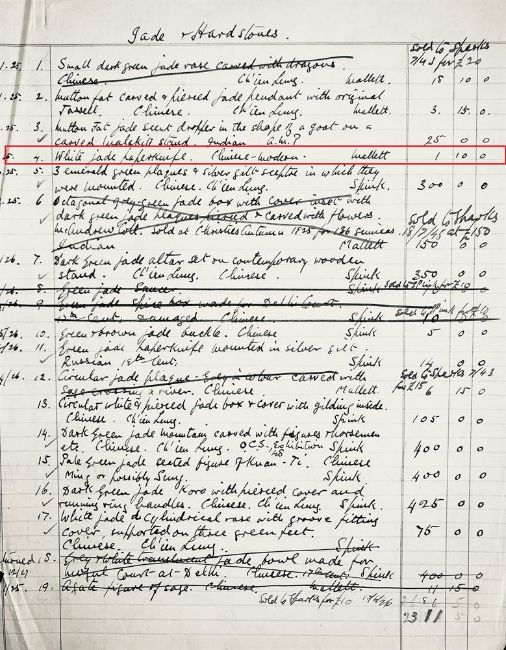 Jade & Hardstones.
Sold to Sparks
1.25. 1. Small dark green jade vase carved with dragons. 7/43 for £20
Chinese. Ch'ien Lung. Mallett. 18 10 0
.25. 2. Mutton fat carved & pierced jade pendant with original
Tassell. Chinese. Ch'ien Lung. Mallett. 3. 15. 0
.25 3. Mutton Fat jade scent dropper in the shape of a goat on a
carved malakite stand. Indian 25 0 0
25. 4. White jade paperknife. Chinese-modern. Mallett 1 10 0
.25. 5. 3 emerald green plaques & silver gilt in which they
were mounted. Chinese. Ch'ien Lung. Spink. 300 0 0
.25. 6 Octagonal grey-green jade box with cover inset with
dark green jade plaques pierced & carved with flowers. Sold to Sparks
Coll. Sold at Christies Autumn 1825 for 86 guineas 18/7/45 at £150
Indian Mallett 150 0 0
/26 7. Dark green jade altar set on contemporary wooden
stand. Ch'ien Lung. Chinese Spink. 350 0 0
/26. 8. Green jade Spink Sold to Spink for £10
/26. 9. Green jade box made for Delhi Court.
Cent. Damaged. Chinese Spink
5/26. 10. Green & brown jade buckle. Chinese Spink 5 0 0
/26. 11. Green jade paperknife mounted in silver gilt.
Russian 19th Cent. Spink 14 0 0
4/26. 12. Circular jade plaque Grey in colour carved with Sold to Sparks 7/43
Sage crossing a river. Chinese. Mallett. for £15 6 15 0
13. Circular white & pierced jade box & cover with gilding inside.
Chinese. Ch'ien Lung. Spink 105 0 0
14. Dark Green jade mountain carved with figures & horsemen
etc. Chinese. Ch'ien Lung. O.C.S. Exhibition 48 Spink 400 0 0
15. Pale Green jade seated figure of Kuan-Ti. Chinese
Ming or possibly Sung. Spink 400 0 0
16. Dark Green jade Koro with pierced cover and
running ring handles. Chinese. Ch'ien Lung. Spink. 425 0 0
17. White jade cylindrical vase with groove fitting
cover, supported on three green feet. 75 0 0
Chinese. Ch'ien Lung. Spink
18. Grey & white translucent jade bowl made for
Mogul Court at Delhi Chinese. 17th Cent. Spink 400 0 0
/25. 19. Agate figure of sage. Chinese. Mallett. 11 15 0
Sold to Sparks for £10
2311 5 0